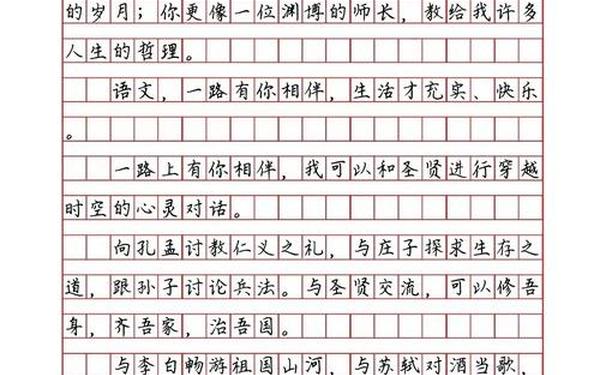 的岁月；你更像一位渊博的师长，教给我许多
人生的哲理。
语文，一路有你相伴，生活才充实、快乐
。
一路上有你相伴，我可以和圣贤进行穿越
时空的心灵对话。
向孔孟讨教仁义之礼，与庄子探求生存之
道，跟孙子讨论兵法。与圣贤交流，可以修吾
身，齐吾家，治吾国。
与李白畅游祖国山河，与苏轼对酒当歌，